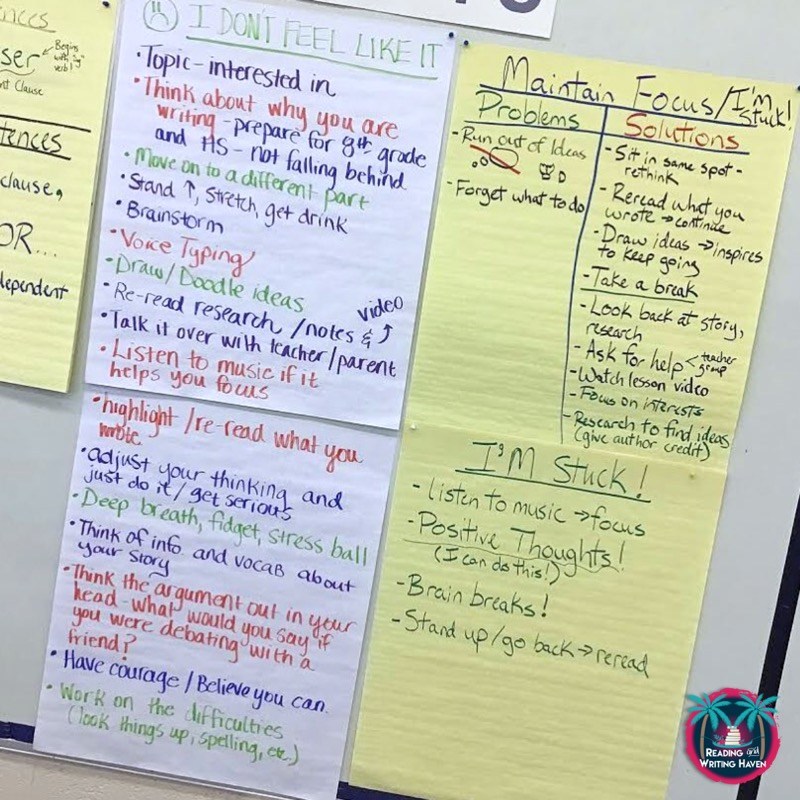 ser
Begins
verb!
nt Clause
tences
clause,
OR...
dependent
I DON'T FEEL LIKE IT
• Topic - interested in
• Think about why you are
writing - prepare for 8th grade
and HS - not falling behind
• Move on to a different part
• Stand ↑, stretch, get drink
• Brainstorm
• Voice Typing
• Draw/Doodle ideas
• Re-read research /notes & video
• Talk it over with teacher/parent
• Listen to music if it
helps you focus
• highlight / re-read what you
wrote
• adjust your thinking and
just do it / get serious
• Deep breath, fidget, stress ball
• Think of info. and vocab about
your story
• Think the argument out in your
head - what would you say if
you were debating with a
friend?
• Have courage / Believe you can
• Work on the difficulties
(look things up, spelling, etc.)
Maintain Focus/I'm
stuck!
Problems
- Run out of Ideas
- Forget what to do
Solutions
- Sit in same spot -
rethink
- Reread what you
wrote → continue
- Draw ideas → inspires
to keep going
- Take a break
- Look back at story,
research
- Ask for help < teacher
group
- Watch lesson video
- Focus on interests
- Research to find ideas
(give author credit)
I'm Stuck!
- listen to music → focus
- Positive Thoughts!
(I can do this!)
- Brain breaks!
- Stand up/go back → reread
READING and
WRITING HAVEN